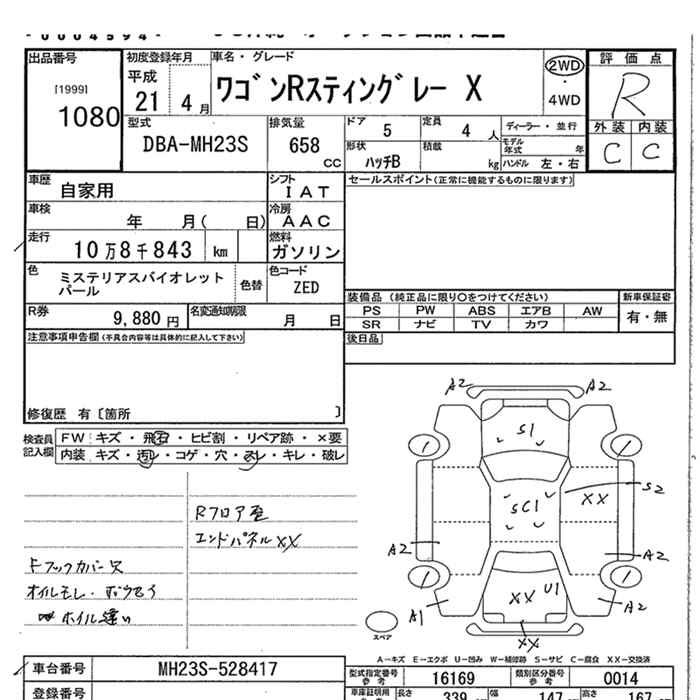 出品番号 初度登録年月 車名・グレード 評価点
[1999] 平成 ワゴンRスティングレー X 2WD R
1080 21 4月 ・4WD
外装 内装
型式 排気量 ドア 定員 ディーラー・並行
DBA-MH23S 658 CC 5 4人 モデル年式 年 C C
形状 積載
ハッチB kg ハンドル 左・右
車歴 自家用 シフト IAT セールスポイント(正常に機能するものに限ります)
車検 年 月( 日) 冷房 AAC
走行 10万8千843 km 燃料 ガソリン
色 ミステリアスバイオレットパール 色替 色コード ZED
装備品 (純正品に限り○をつけてください) 新車保証書
R券 9,880円 名変通知期限 月 日
PS PW ABS エアB AW 有・無
SR ナビ TV カワ
注意事項申告欄(不具合内容等は具体的に記入して下さい) 後日品
修復歴 有〔箇所 〕
検査員記入欄 FW キズ・飛石・ヒビ割・リペア跡・×要
内装 キズ・汚レ・コゲ・穴・スレ・キレ・破レ
A2 A2
S1
1 1
SC1 XX S2
A2 A2
1 1
XX U1
A1 A2
XX
Rフロア歪
エンドパネルXX
Fフックカバー欠
オイルモレ・
ホイル違い
スペア
A-キズ E-エクボ U-凹み W-補修跡 S-サビ C-腐食 XX-交換済
車台番号 MH23S-528417 型式指定番号 参考 16169 類別区分番号 参考 0014
登録番号 車庫証明用 参考 長さ 339 幅 147 高さ 167